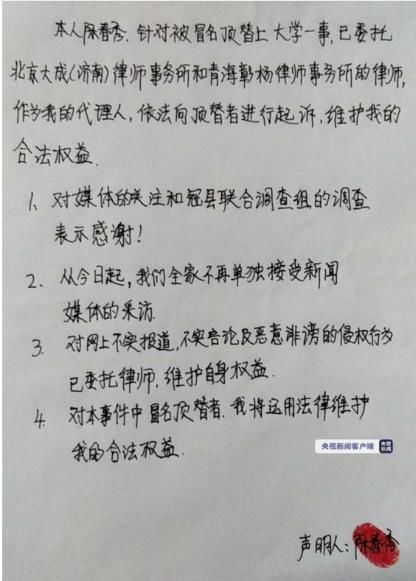 本人陈春秀，针对被冒名顶替上大学一事，已委托
北京大成（济南）律师事务所和青海彰杨律师事务所的律师，
作为我的代理人，依法向顶替者进行起诉，维护我的
合法权益.
1、对媒体的关注和冠县联合调查组的调查
表示感谢！
2、从今日起，我们全家不再单独接受新闻
媒体的采访.
3、对网上不实报道，不实言论及恶意诽谤的侵权行为
已委托律师，维护自身权益.
4、对本事件中冒名顶替者，我将运用法律维护
我的合法权益.
央视新闻客户端
央视
新闻
声明人：陈春秀